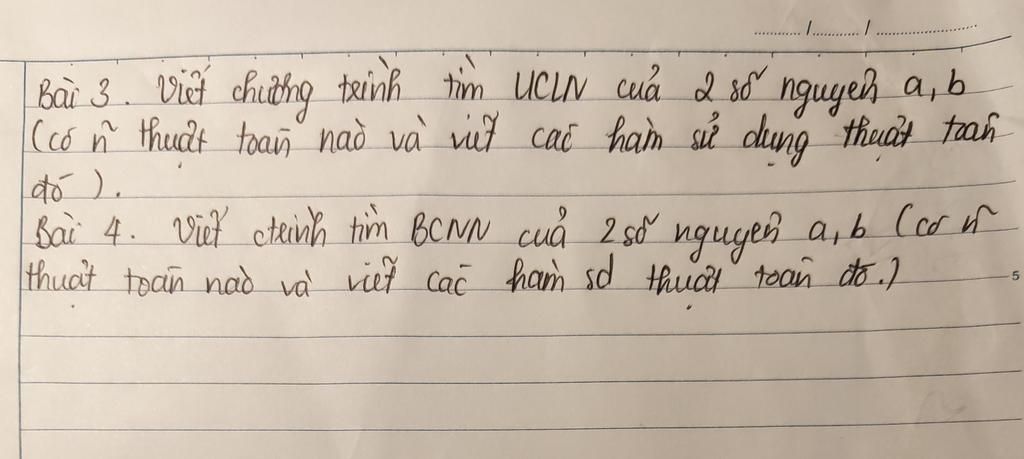 ............/............/.........................
Bài 3. Viết chương trình tìm UCLN của 2 số nguyên a, b
(có n~ thuật toán nào và viết các hàm sử dụng thuật toán
đó).
Bài 4. Viết ctrình tìm BCNN của 2 số nguyên a, b (có n~
thuật toán nào và viết các hàm sd thuật toán đó.)
5